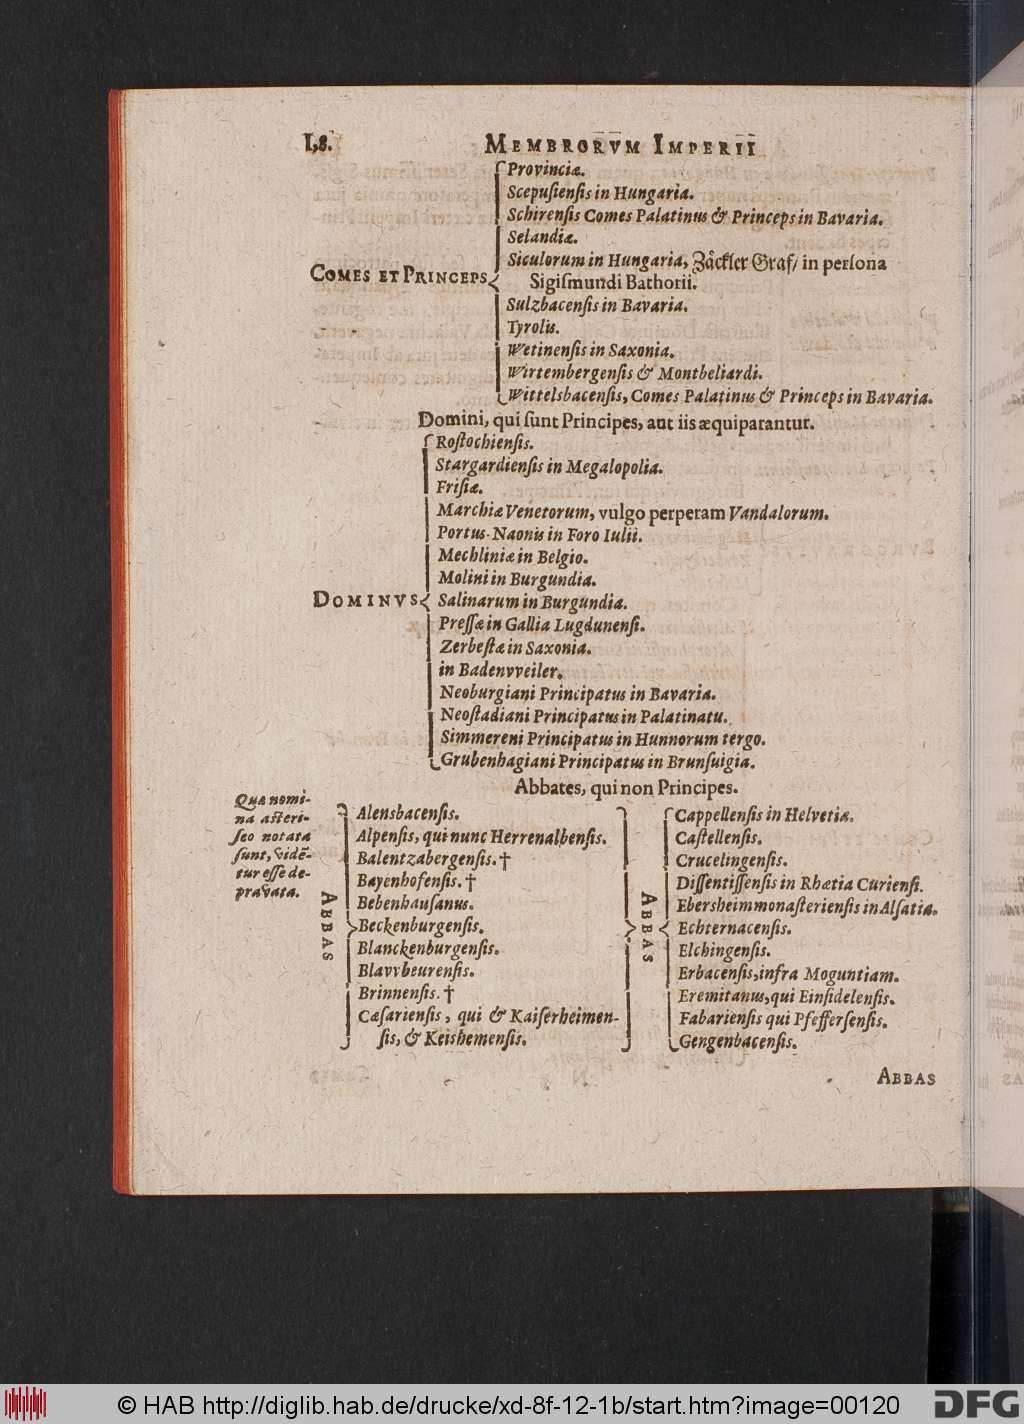 MEMBRORVM IMPERII
Provinciæ.
Scepuſienſis in Hungaria.
Schirenſis Comes Palatinus & Princeps in Bavaria.
Selandiæ.
Siculorum in Hungaria, Zåckler Graf/ in perſona
COMES ET PRINCEPS
Sigiſmundi Bathorii.
Sulzbacenſis in Bavaria.
Tyrolis.
Wetinenſis in Saxonia.
Wirtembergenſis & Montbeliardi.
Wittelsbacenſis, Comes Palatinus & Princeps in Bavaria.
Domini, qui ſunt Principes, aut iis æquiparantur.
Roſtochienſis.
Stargardienſis in Megalopolia.
Friſiæ.
Marchiæ Venetorum, vulgo perperam Vandalorum.
Portus-Naonis in Foro Iulii.
Mechliniæ in Belgio.
Molini in Burgundia.
DOMINVS
Salinarum in Burgundia.
Preſſæ in Gallia Lugdunenſi.
Zerbeſtæ in Saxonia.
in Badenvveiler.
Neoburgiani Principatus in Bavaria.
Neoſtadiani Principatus in Palatinatu.
Simmereni Principatus in Hunnorum tergo.
Grubenhagiani Principatus in Brunſuigia.
Abbates, qui non Principes.
Quæ nomi-
na aſteri-
ſco notata
ſunt, vidẽ-
tur eſſe de-
pravata.
ABBAS
Alensbacenſis.
Alpenſis, qui nunc Herrenalbenſis.
Balentzabergenſis. †
Bayenhofenſis. †
Bebenhauſanus.
Beckenburgenſis.
Blanckenburgenſis.
Blavvbeurenſis.
Brinnenſis. †
Cæſarienſis, qui & Kaiſerheimen-
ſis, & Keishemenſis.
ABBAS
Cappellenſis in Helvetia.
Caſtellenſis.
Crucelingenſis.
Diſſentiſſenſis in Rhætia Curienſi.
Ebersheimmonaſterienſis in Alſatia.
Echternacenſis.
Elchingenſis.
Erbacenſis, infra Moguntiam.
Eremitanus, qui Einſidelenſis.
Fabarienſis qui Pfefferſenſis.
Gengenbacenſis.
ABBAS
© HAB http://diglib.hab.de/drucke/xd-8f-12-1b/start.htm?image=00120
DFG